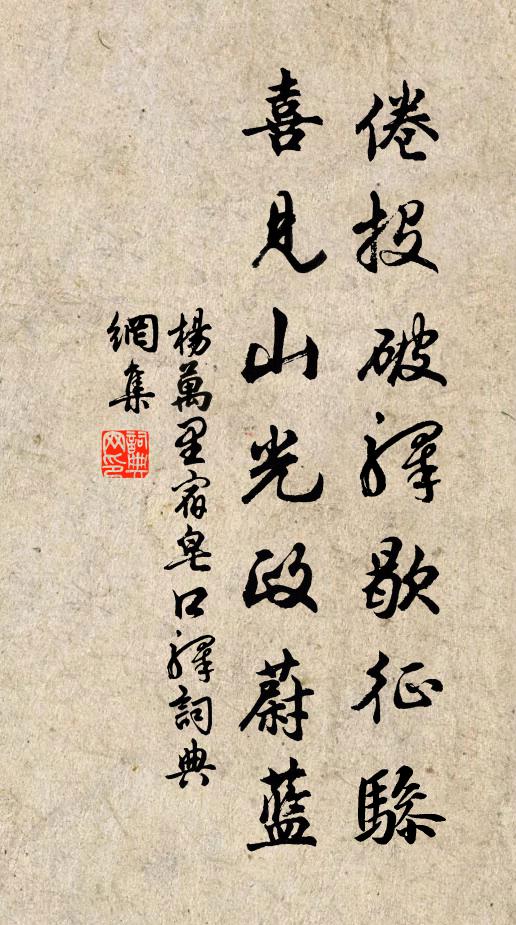 倦投破驛歇征驂
喜見山光政蔚藍
楊萬里宿皂口驛詞典
網集
詞典網印